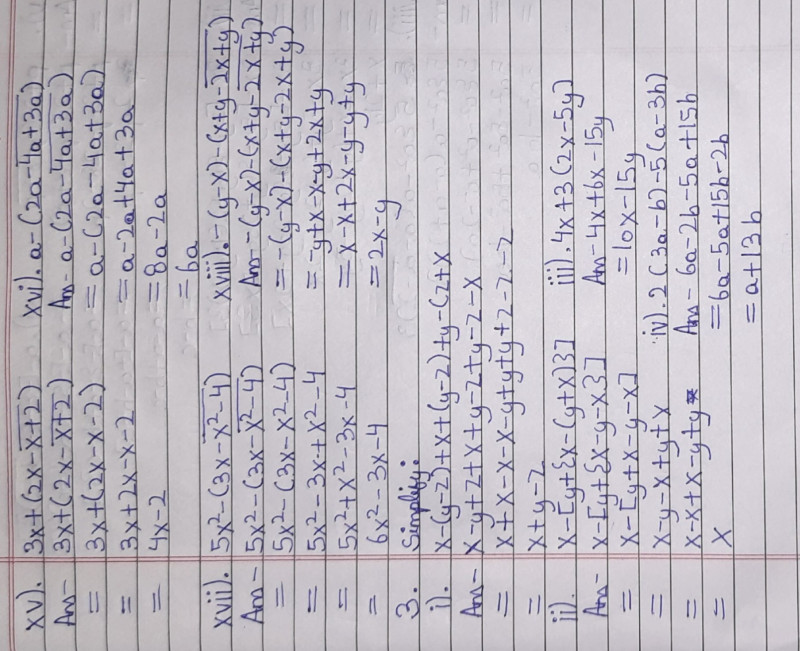 xv). 3x+(2x-x+2)
Ans- 3x+(2x-x+2)
= 3x+(2x-x-2)
= 3x+2x-x-2
= 4x-2
xvi). a-(2a-4a+3a)
Ans- a-(2a-4a+3a)
= a-(2a-4a+3a)
= a-2a+4a+3a
= 8a-2a
= 6a
xvii). 5x²-(3x-x²-4)
Ans- 5x²-(3x-x²-4)
= 5x²-(3x-x²-4)
= 5x²-3x+x²-4
= 5x²+x²-3x-4
= 6x²-3x-4
xviii). -(y-x)-(x+y-2x+y)
Ans- -(y-x)-(x+y-2x+y)
= -(y-x)-(x+y-2x+y)
= -y+x-x-y+2x+y
= x-x+2x-y-y+y
= 2x-y
3. Simplify:
i). x-(y-z)+x+(y-z)+y-(z+x
Ans- x-y+z+x+y-z+y-z-x
= x+x-x-x-y+y+y+z-z-z
= x+y-z
ii). x-[y+{x-(y+x)}]
Ans- x-[y+{x-y-x}]
= x-[y+x-y-x]
= x-y-x+y+x
= x-x+x-y+y
= x
iii). 4x+3(2x-5y)
Ans- 4x+6x-15y
= 10x-15y
iv). 2(3a-b)-5(a-3b)
Ans- 6a-2b-5a+15b
= 6a-5a+15b-2b
= a+13b